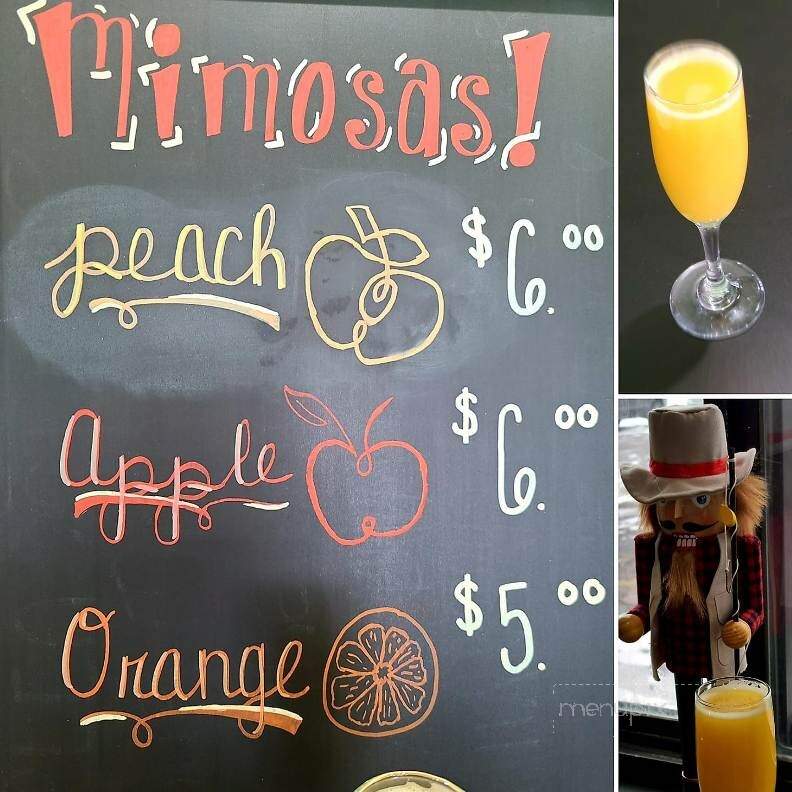 Mimosas!
peach $6.00
Apple $6.00
Orange $5.00